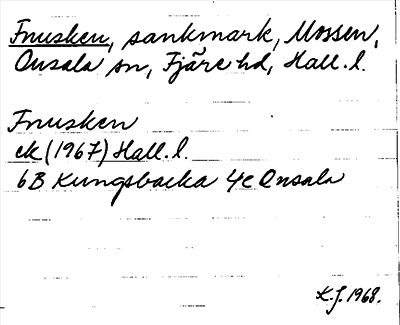 Fnusken, sankmark, Mossen,
Onsala sn, Fjäre hd, Hall. l.
Fnusken
ek (1967) Hall. l.
6B Kungsbacka 4c Onsala
K.J. 1968.